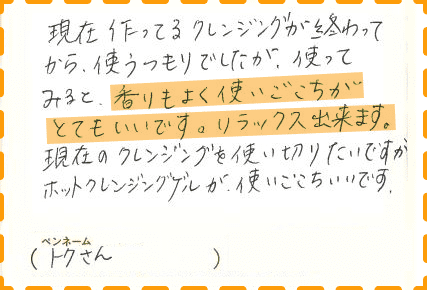 現在 作ってる クレンジングが終わって
から、使うつもりでしたが、使って
みると、香りもよく使いごこちが
とてもいいです。リラックス出来ます。
現在のクレンジングを使い切りたいですが
ホットクレンジングゲルが、使いごこちいいです。
ペンネーム
(トクさん)